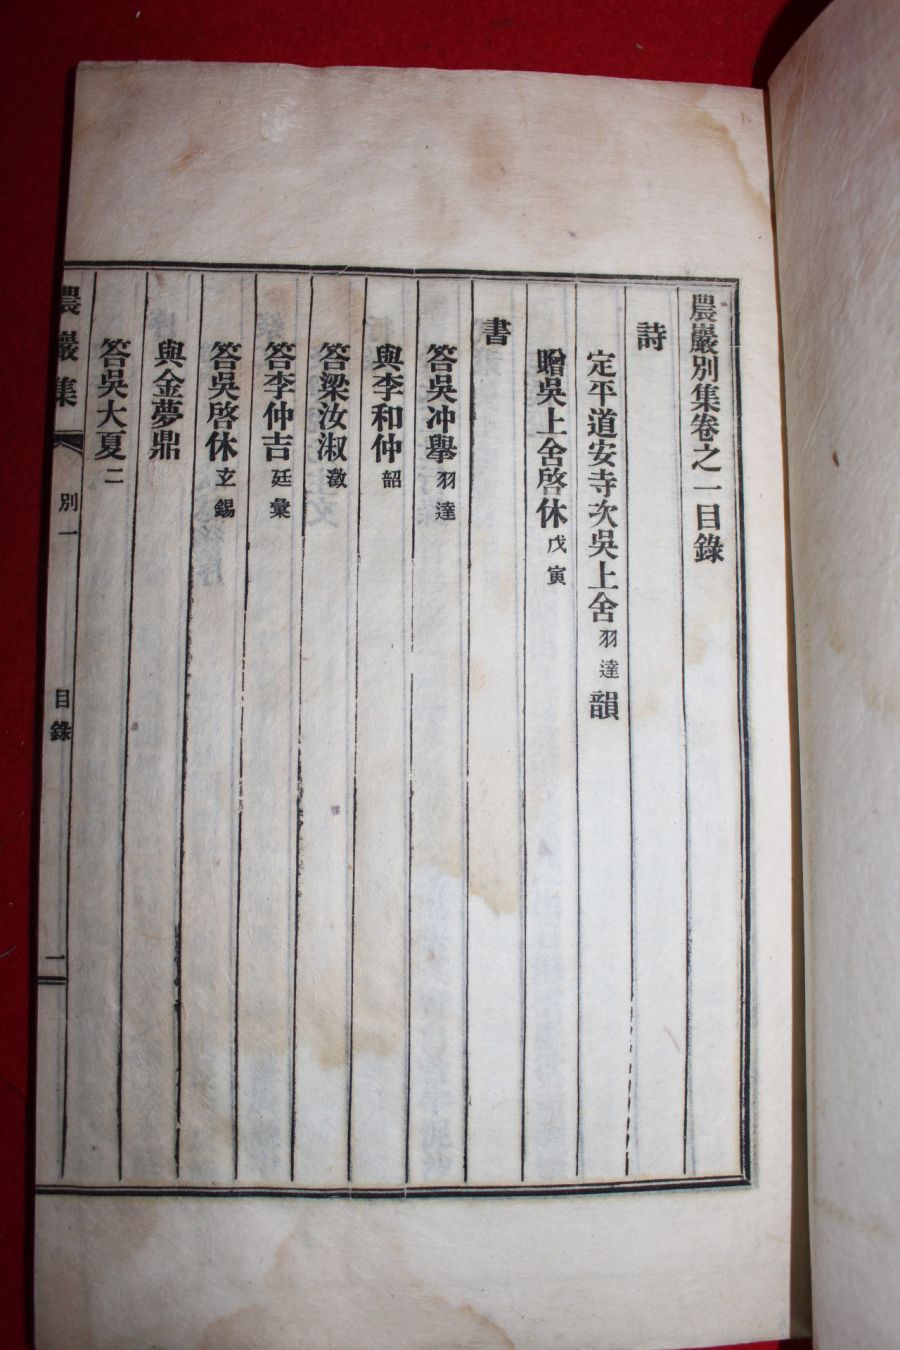 農巖別集卷之一目錄
詩
定平道安寺次吳上舍羽達韻
贈吳上舍啓休戊寅
書
答吳冲擧羽達
與李和仲韶
答梁汝淑澂
答李仲吉廷彙
答吳啓休玄錫
與金夢鼎
答吳大夏二
農巖集 別一 目錄 一